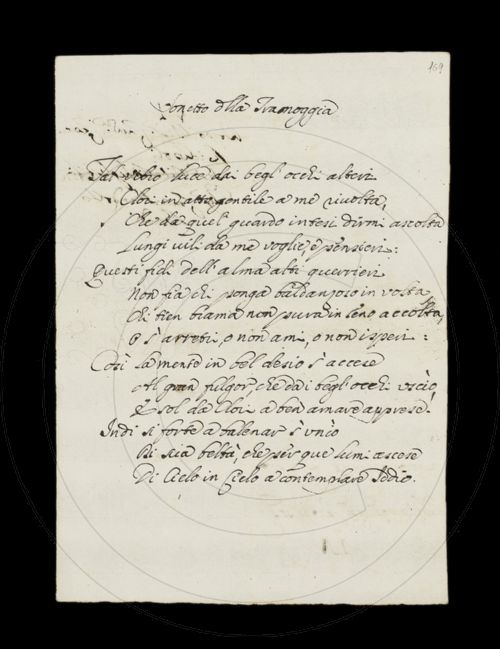 169
Sonetto della Tramoggia
Tal vibrò luce dai begl' occhi alteri
Clori in atto gentile a me rivolta,
Che da quel guardo intesi dirmi ascolta
Lungi vili da me voglie, e pensieri:
Questi fidi dell' alma alti guerrieri
Non fia chi ponga baldanzoso in volta
Chi rien brama non pura in seno accolta,
O s' arresti, o non ami, o non isperi:
Così la mente in bel desio s' accese
Al gran fulgor, che dai begl' occhi uscio,
E sol da Clori a ben amare apprese.
Indi sì forte a balenar s' unìo
Di sua beltà, che per que' lumi ascese
Di Cielo in Cielo a contemplare Iddio.